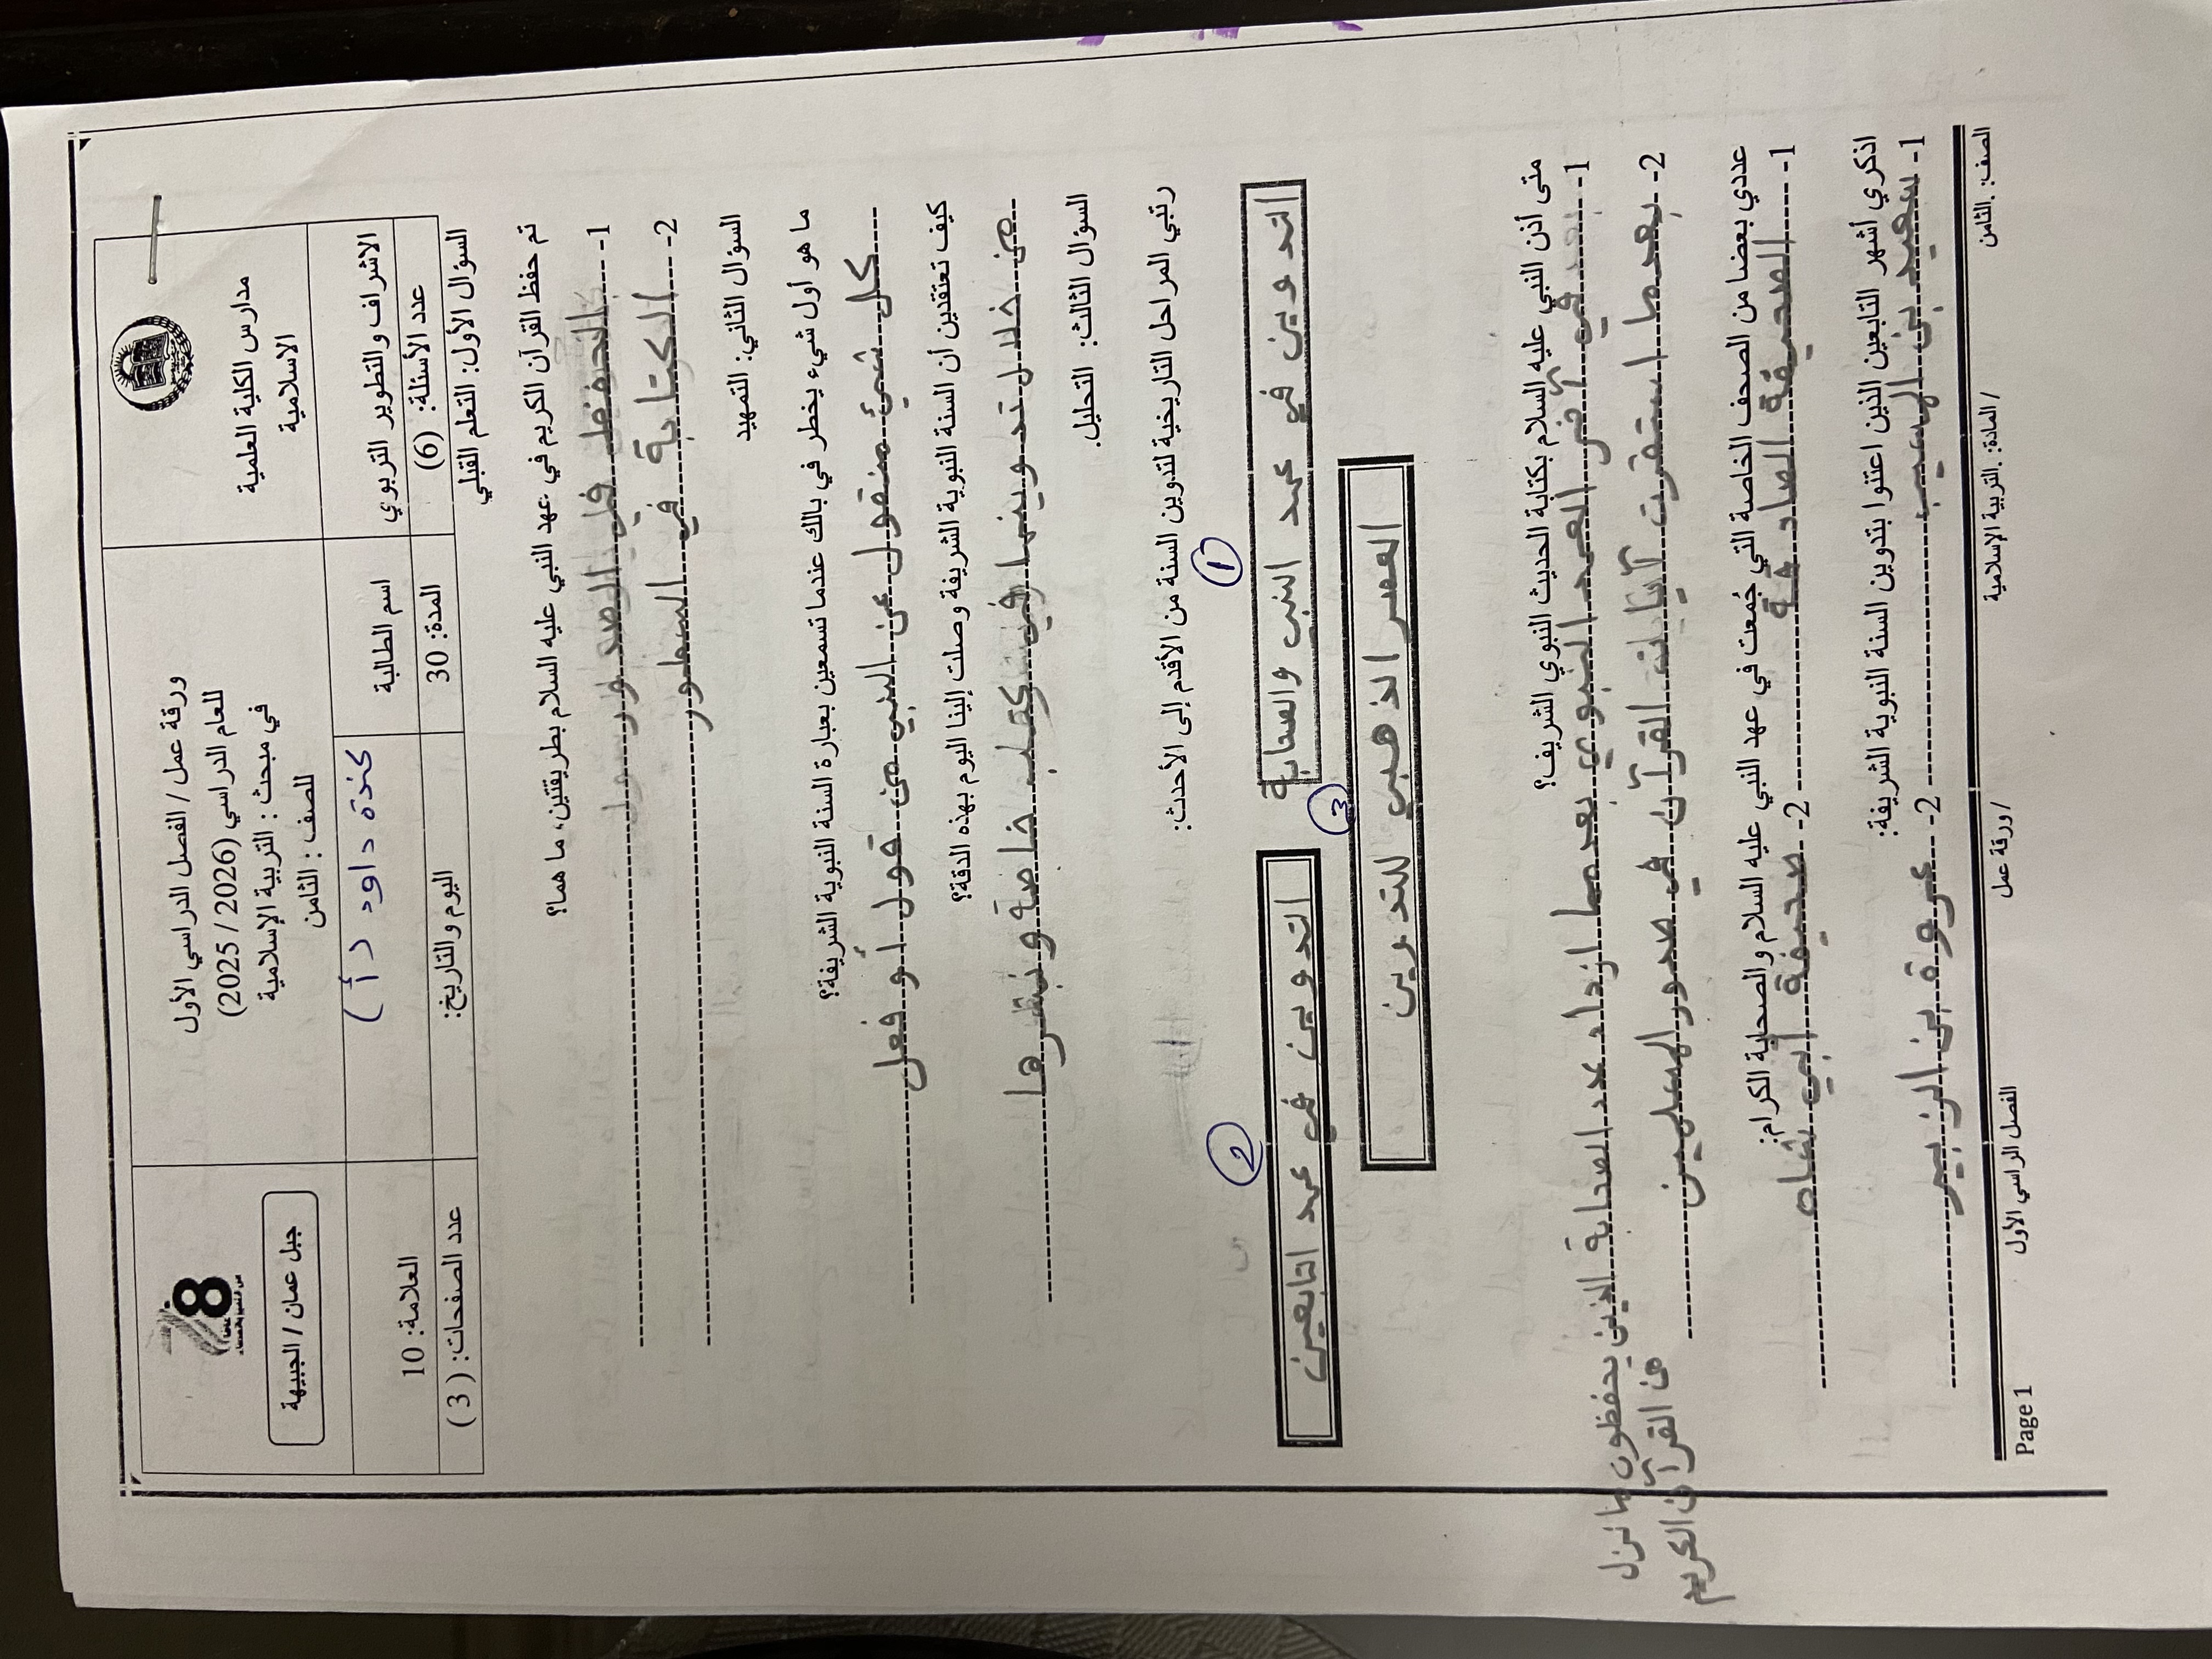 مدارس الكلية العلمية
الاسلامية
ورقة عمل / الفصل الدراسي الأول
للعام الدراسي (2025 / 2026)
في مبحث : التربية الإسلامية
للصف : الثامن
78
جبل عمان / الجبيهة
الاشراف والتطوير التربوي
اسم الطالبة
كندة داود (أ)
العلامة: 10
عدد الأسئلة: (6)
المدة: 30
اليوم والتاريخ:
عدد الصفحات: ( 3 )
السؤال الأول: التعلم القبلي
تم حفظ القرآن الكريم في عهد النبي عليه السلام بطريقتين، ما هما؟
1- الحفظ في الصدور
2- الكتابة في السطور
السؤال الثاني: التمهيد
ما هو أول شيء يخطر في بالك عندما تسمعين بعبارة السنة النبوية الشريفة؟
كل شيئ منقول عن النبي من قول أو فعل
كيف تعتقدين أن السنة النبوية الشريفة وصلت إلينا اليوم بهذه الدقة؟
من خلال تدوينها في كتب خاصة و نشرها
السؤال الثالث: التحليل.
رتبي المراحل التاريخية لتدوين السنة من الأقدم إلى الأحدث:
1
2
التدوين في عهد النبي والصحابة
التدوين في عهد التابعين
3
العصر الذهبي للتدوين
متى أذن النبي عليه السلام بكتابة الحديث النبوي الشريف؟
1- في آخر العهد النبوي بعدما ازداد عدد الصحابة الذين يحفظون ما نزل
من القرآن الكريم
2- بعدما استقرت آيات القرآن في صدور المسلمين
عددي بعضا من الصحف الخاصة التي جُمعت في عهد النبي عليه السلام والصحابة الكرام:
1- الصحيفة الصادقة 2- صحيفة أبي شاه
اذكري أشهر التابعين الذين اعتنوا بتدوين السنة النبوية الشريفة:
1- سعيد بن المسيب 2- عروة بن الزبير
الصف: .الثامن / المادة: .التربية الإسلامية / ورقة عمل الفصل الراسي الأول Page 1